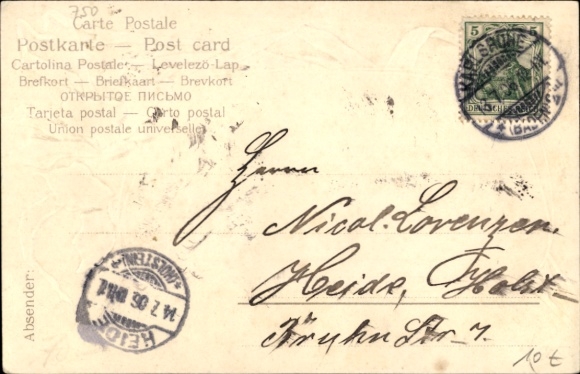 750
Carte Postale
Postkarte — Post card
Cartolina Postale — Levelező-Lap
Brefkort — Briefkaart — Brevkort
ОТКРЫТОЕ ПИСЬМО
Tarjeta postal — Carto postal
Union postale universelle
5 5
DEUTSCHES REICH
KARLSRUHE
(BADEN)
Herrn
Nicol. Lorenzen.
Heide, Holst.
Str. 7.
HEIDE
*(HOLSTEIN)*
14.7.06
Absender:
10 €